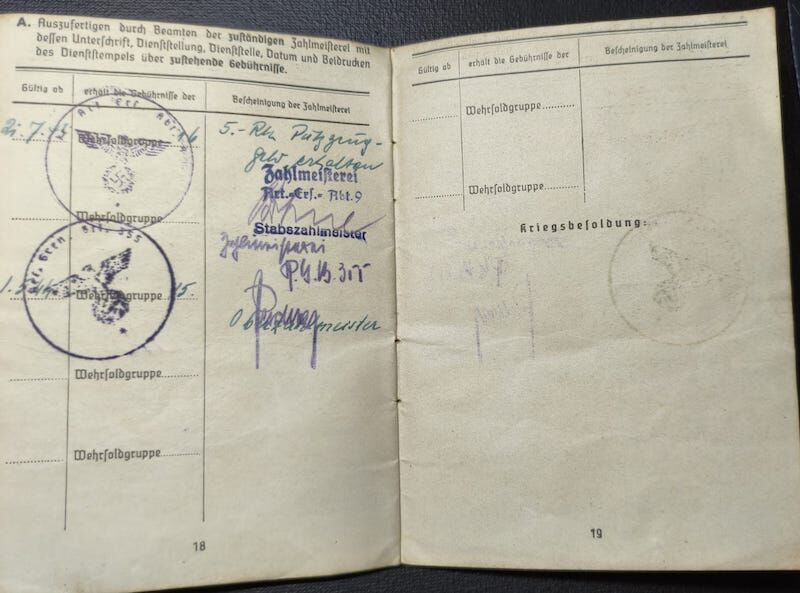 A. Auszufertigen durch Beamten der zuständigen Zahlmeisterei mit
dessen Unterschrift, Dienststellung, Dienststelle, Datum und Beidrucken
des Dienststempels über zustehende Gebührnisse.
Gültig ab
erhält die Gebührnisse der
Bescheinigung der Zahlmeisterei
.7.43
Wehrsoldgruppe 16
5.- Rm Putzzeug-
geld erhalten
Zahlmeisterei
Art.-Ers.- Abt. 9
Stabszahlmeister
Wehrsoldgruppe
Zahlmeisterei
1.5.44 Wehrsoldgruppe 15.
Oberzahlmeister
Wehrsoldgruppe
Wehrsoldgruppe
18
Gültig ab
erhält die Gebührnisse der
Bescheinigung der Zahlmeisterei
Wehrsoldgruppe
Wehrsoldgruppe
Kriegsbesoldung:
19